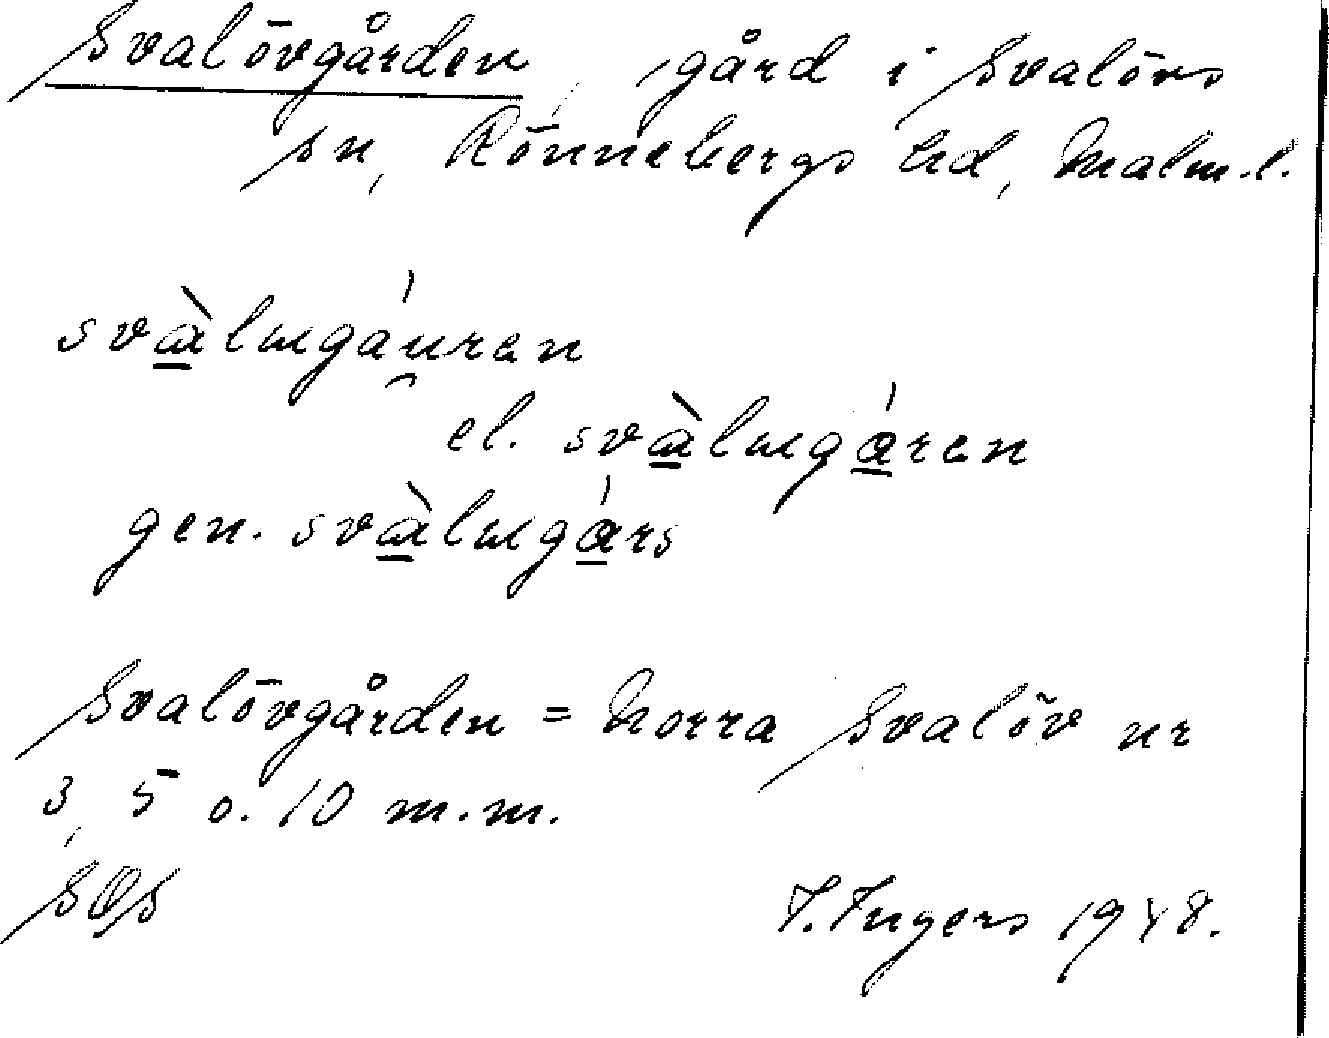 Svalövgården, gård i Svalövs
sn, Rönnebergs hd, Malm.l.
svàlɯgáu̯ren
el. svàlɯgáren
gen. svàlɯgárs
Svalövgården = Norra Svalöv nr
3, 5 o. 10 m.m.
SOS I. Ingers 1948.